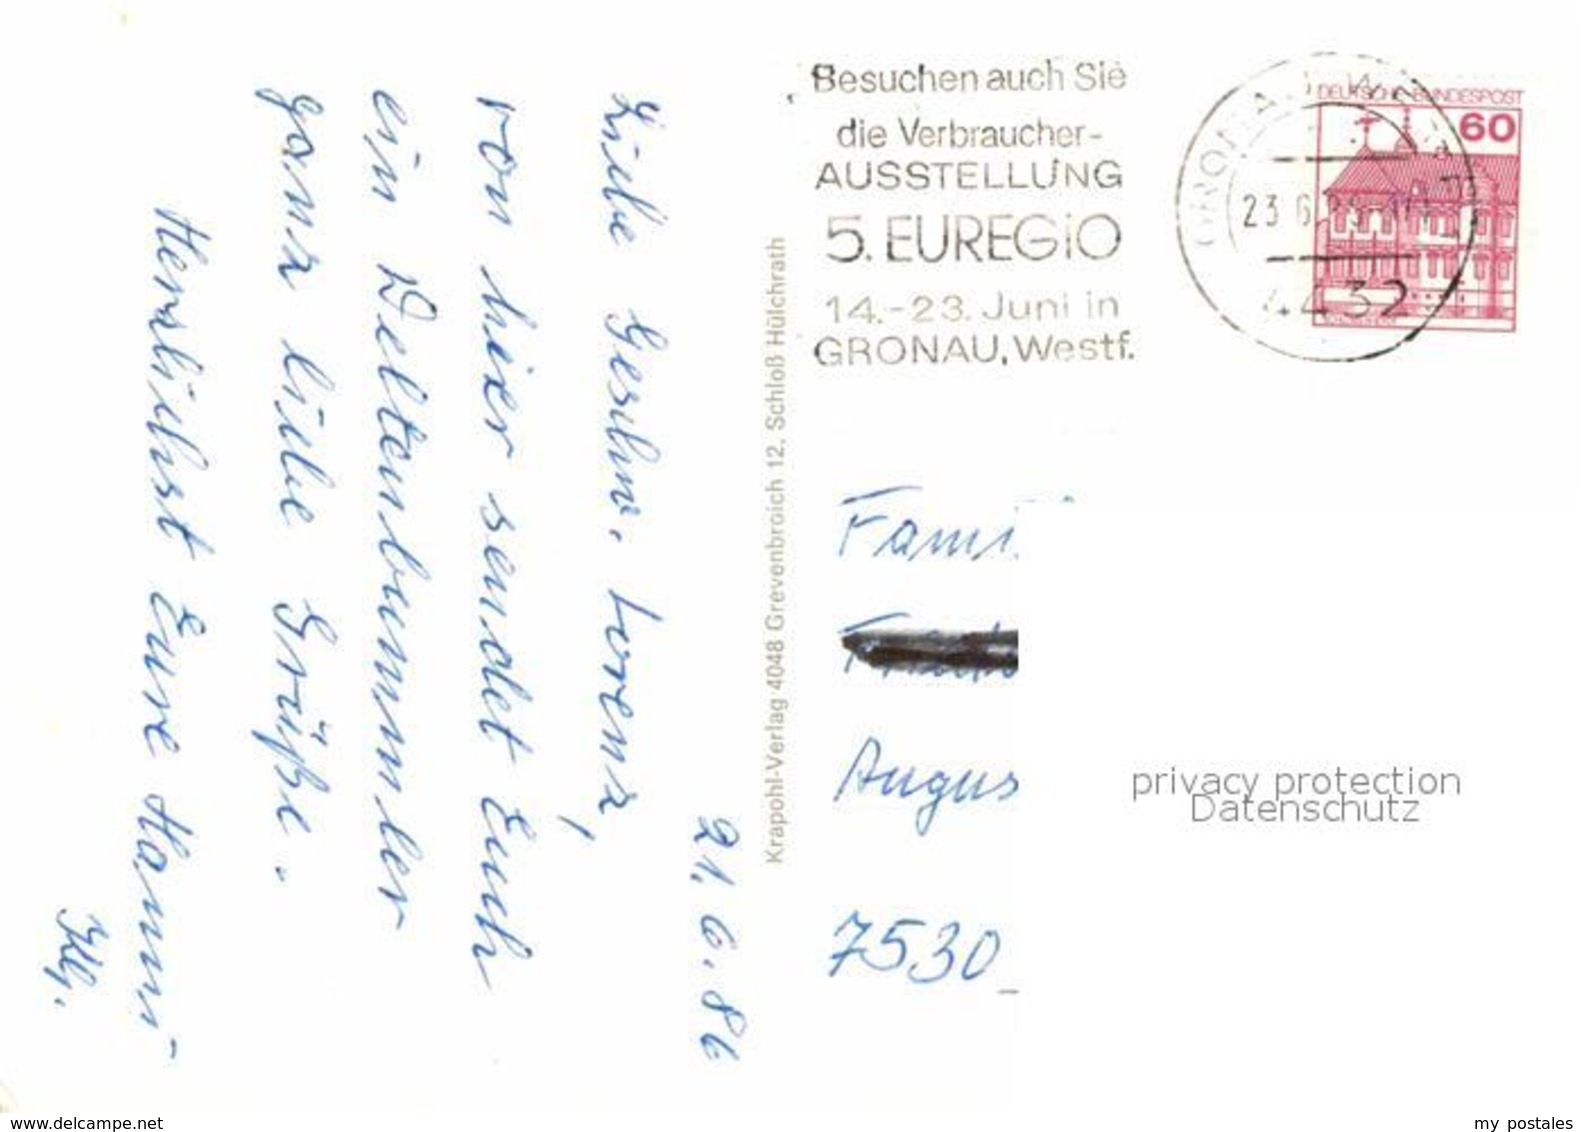 21.6.86
Liebe Geschw. Lorenz,
von hier sendet Euch
ein Weltenbummler
ganz liebe Grüße.
Herzlichst Eure Hanni
Krapohl-Verlag 4048 Grevenbroich 12, Schloß Hülchrath
Besuchen auch Sie
die Verbraucher-
AUSSTELLUNG
5. EUREGIO
14.-23. Juni in
GRONAU, Westf.
DEUTSCHE BUNDESPOST
60
23 6
4432
Fami
Augus
7530
privacy protection
Datenschutz
www.delcampe.net
my postales